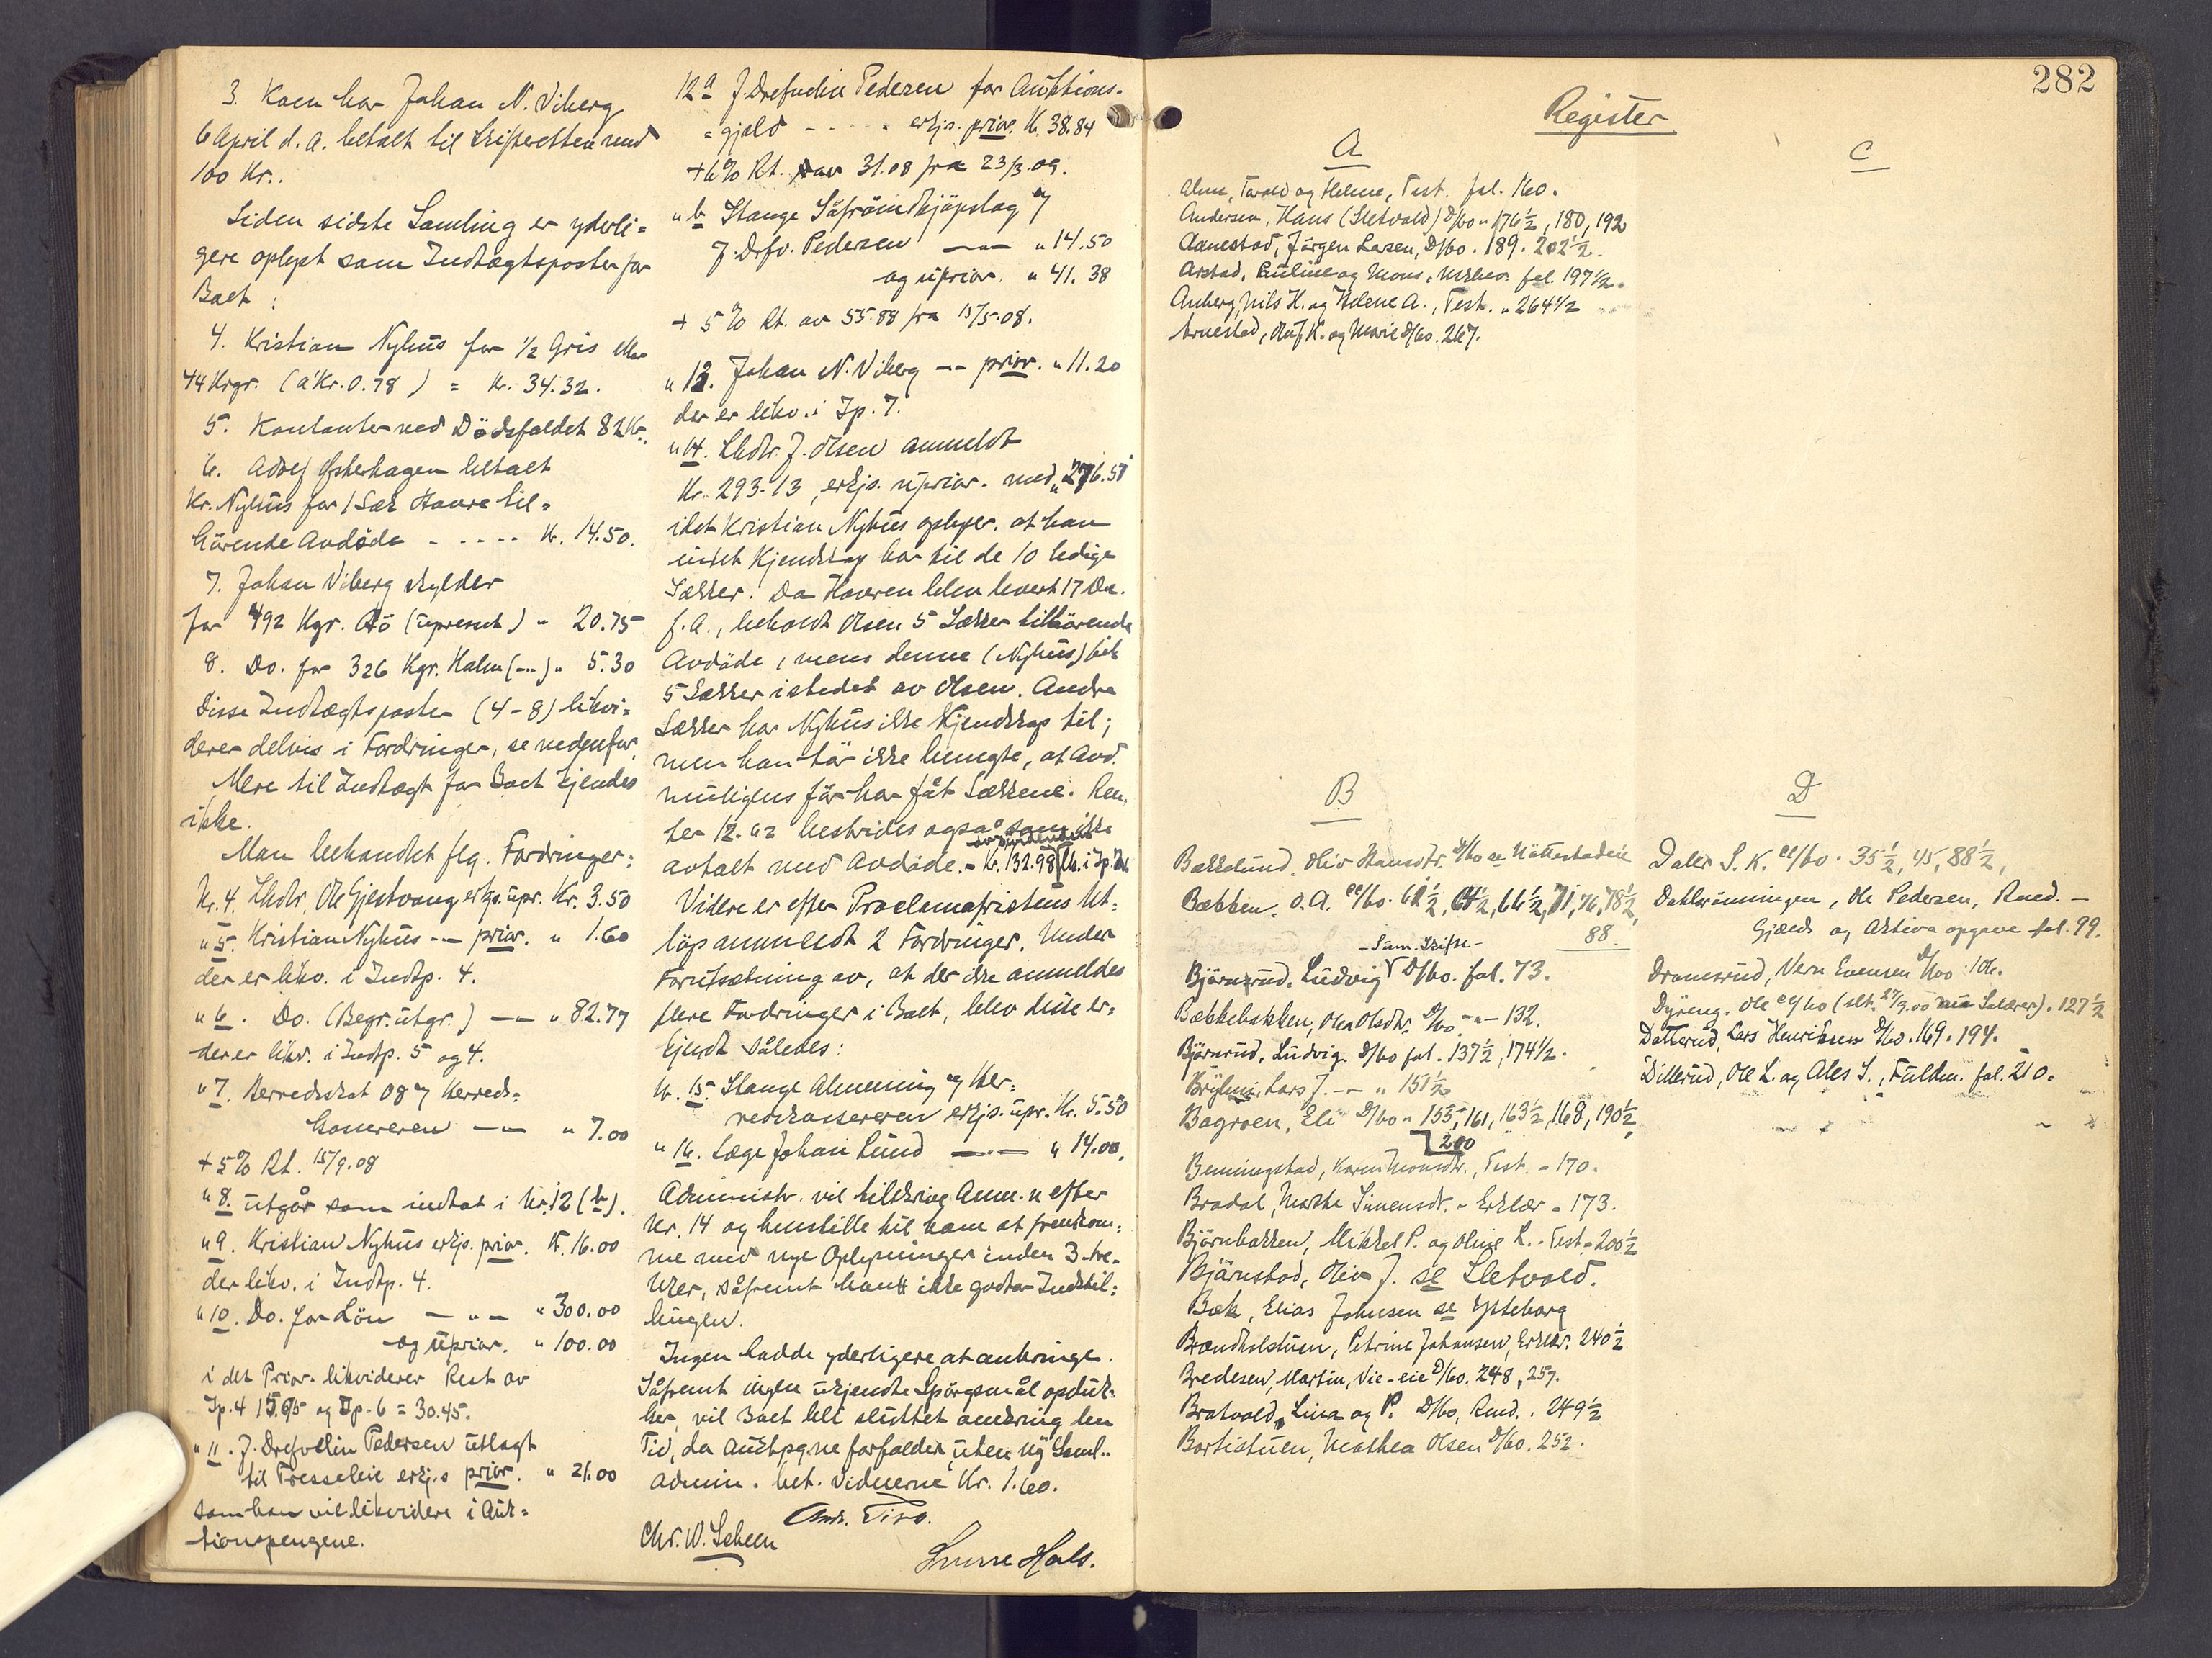 3. Koen har Johan N. Viberg
6 April d. A. betalt til Skifteretten med
100 Kr..
Siden sidste Samling er yderli=
gere oplyst som Indtægtsposter for
Boet :
4. Kristian Nyhus for 1/2 Gris
44 Kgr. (a' Kr. 0.78) = Kr. 34.32.
5. Kontanter ved Dödsfaldet 82 Kr.
6. Adolf Østerhagen betalt
Kr. Nyhus for 1 Sæk Havre til=
hörende Avdöde - - - - - Kr. 14.50.
7. Johan Viberg skylder
for 492 Kgr. Hö (upresset) " 20.75
8. Do. for 326 Kgr. Halm (-"-) " 5.30
Disse Indtægtsposter (4-8) likvi=
derer delvis i Fordringer, se nedenfor.
Mere til Indtægt for Boet kjendes
ikke.
Man behandlet flg. Fordringer:
Nr. 4. Lhdlr. Ole Gjestvang erkjs. upr. Kr. 3.50
" 5. Kristian Nyhus -"- prior. " 1.60
der er likv. i Indtp. 4.
" 6. Do. (Begr. utgr.) -"- " 82.77
der er likv. i Indtp. 5 og 4.
" 7. Herredsskat 08 og Herreds=
kassereren -"- " 7.00
+ 5% Rt. 15/9.08
" 8. utgår som indtat i Nr. 12 (b).
" 9. Kristian Nyhus erkjs. prior. Kr. 16.00
der likv. i Indtp. 4.
" 10. Do. for Lön - " - " 300.00
og uprior. " 100.00
i det Prior. likviderer Rest av
Ip. 4 15.95 og Ip. 6 = 30.45.
" 11. J. Drefvelin Pedersen utlagt
til Fresseleie erkj.s prior. " 21.00
som han vil likvidere i Auk=
tionspengene.
12 a J. Drefvelin Pedersen for Auktions-
=gjæld - - - - erkjs. prior. Kr. 38.84
+ 6% Rt. av 31.08 fra 23/3.09.
" b Stange Såfrömdkjöpslag og
J. Drfv. Pedersen -"- " 14.50
og uprior. " 41.38
+ 5% Rt. av 55.88 fra 15/5.08.
" 13. Johan N. Viberg -"- prior. " 11.20
der er likv. i Ip. 7.
" 14. Lhdlr. J. Olsen anmeldt
Kr. 293.13, erkjs. uprior. med " 276.51
idet Kristian Nyhus oplyser, at han
intet Kjendskap har til de 10 ledige
Sækker. Da Havren blev levert 17 De.
f. A., beholdt Olsen 5 Sækker tilhörende
Avdöde, mens denne (Nyhus) fik
5 Sækker istedet av Olsen. Andre
Sækker har Nyhus ikke Kjendskap til;
men han tör ikke benegte, at Avd.
muligens för har fåt Sækkene. Ren,
ter 12.62 bestrides også som ikke
avtalt med Avdöde. - Kr. 132.98
Videre er efter Proclamafristens Ut=
löp anmeldt 2 Fordringer. Under
Forutsætning av, at der ikke anmeldes
flere Fordringer i Boet, blev disse er=
kjendt således:
Nr. 15. Stange Almenning og Her=
redskassereren erkjs. upr. Kr. 5.50
" 16. Læge Johan Lund -"- " 14.00.
Administr. vil tilskrive Anm. n efter
Nr. 14 og henstille til ham at fremkom=
me med nye Oplysninger inden 3 tre.
Uker, såfremt han ikke godtar Indstil=
lingen.
Ingen hadde yderligere at anbringe.
Såfremt ingen ukjendte Spörgsmål opduk-
ker, vil Boet bli sluttet omkring den
Tid, da Auktpg.ne forfalder, uten ny Saml..
Admin. bet. Vidnerne Kr. 1.60.
Chr. W. Scheen
282
Register
A
C
Alme, Tarald og Helene, Test. fol. 160.
Andersen, Hans (Sletvold) D/bo " 176 1/2, 180, 192
Aanestad, Jörgen Larsen, D/bo. 189. 202 1/2.
Arstad, Pauline og Mons, fol. 197 1/2.
Anberg, Nils H. og Helene A., Test. " 264 1/2
Arnestad, Oluf K. og Marie D/bo. 267.
B
D
Bakkelund, Oliv Hansdtr. D/bo se Nöttestadeie
Bækken, O. A. cc/bo. 61 1/2, 64 1/2, 66 1/2, 71, 76, 78 1/2,
88.
-Sam. Skifte-
Björnsrud, Ludvig D/bo. fol. 73.
Bækkebakken, Olea Olsdtr. D/bo -"- 132.
Björnrud, Ludvig D/bo fol. 137 1/2, 174 1/2.
Lars J. -"- " 151 1/2
Bagroen, Eli D/bo " 155, 161, 163 1/2, 168, 190 1/2,
200
Benningstad, Karen Monsdtr., Test. " 170.
Bradal, Marthe Simensdr. " Erklær " 173.
Björnbakken, Mikkel P. og Oline L. " Test " 200 1/2
Björnstad, Oliv J. se Sletvold.
Bæk, Elias Johnsen se Ystebarg
Brændholstuen, Petrine Johansen, Erklær. 240 1/2
Bredesen, Martin, Vie-eie D/bo. 248, 257.
Bratvold, Lina og P. D/bo, Rmd. . 249 1/2
Bortistuen, Mathea Olsen D/bo. 252.
Daler S. K. cc/bo. 35 1/2, 45, 88 1/2,
Dahlrönningen, Ole Pedersen, Rmd. -
Gjælds og Aktiva opgave fol. 99.
Dramsrud, Vern Evensen D/bo : 106.
Dyreng, Ole cc/bo (slt. 27/9.00 Salærer) . 127 1/2
Dotterud, Lars Henriksen D/bo. 169. 194.
Dillerud, Ole L. og Ales S., Fuldm. fol. 210.